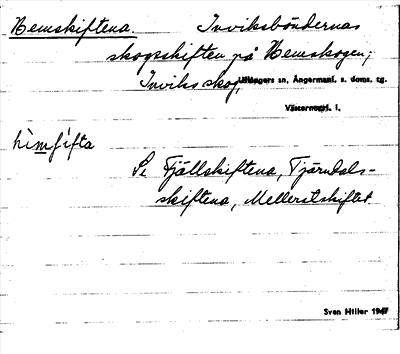 Hemskiftena. Inviksböndernas
skogsskiften på Hemskogen;
Inviks skog, Ullångers sn, Ångermanl. s. doms. tg.
Västernorrl. l.
hemfifta
Se Fjällskiftena, Tjärndals-
skiftena, Mellerstskiftet
Sven Hiller 1947